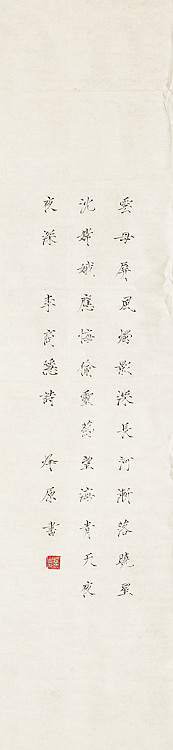 雲母屏風燭影深長河漸落曉星
沈嫦娥應悔偷靈藥海青天夜
夜深 李商隱詩 原書